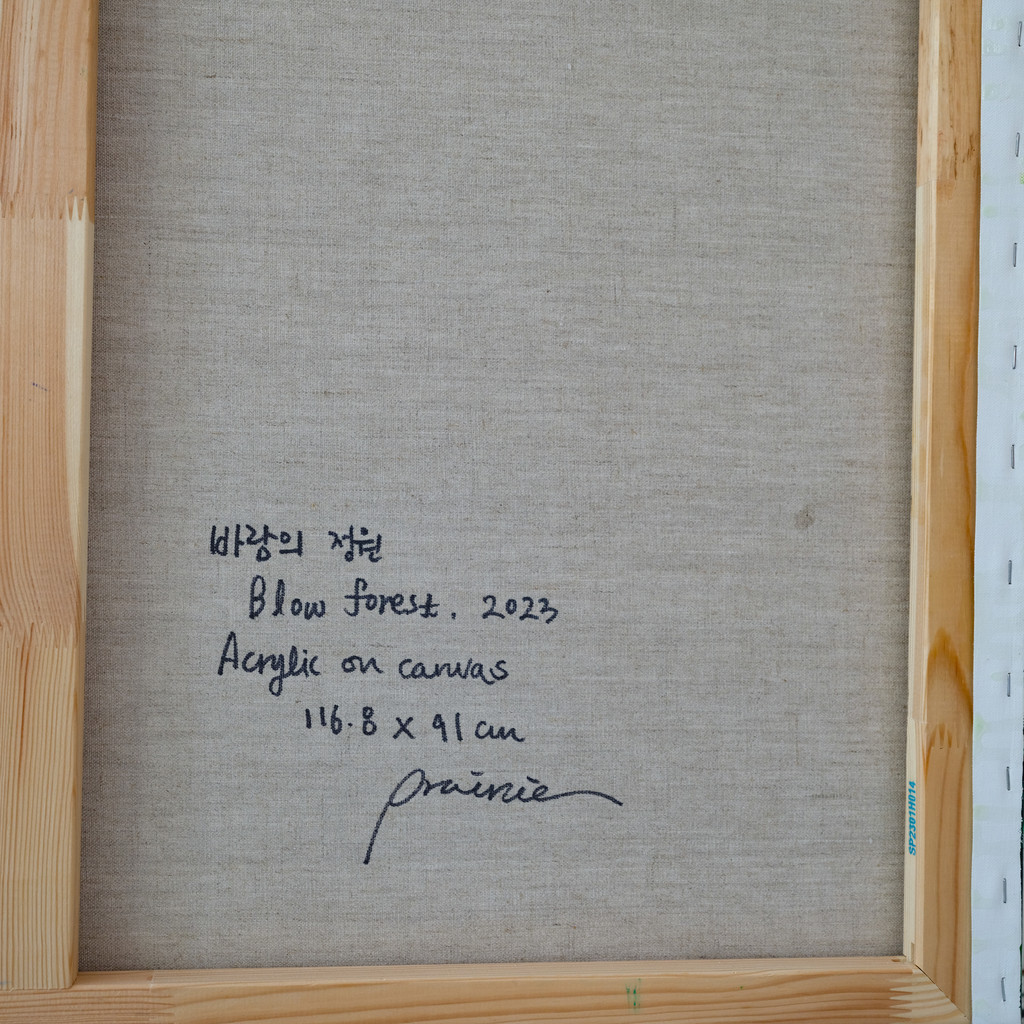 바람의 정원
Blow forest, 2023
Acrylic on canvas
116.8 x 91 cm
prairie
SP2301H014